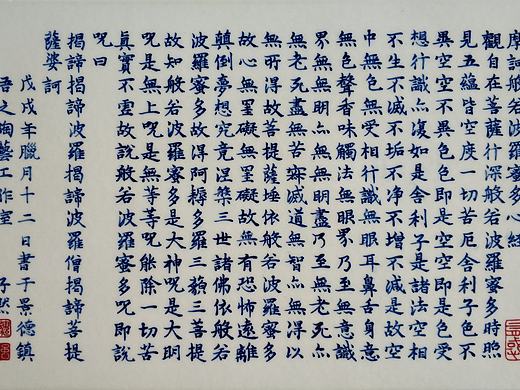 摩訶般若波羅蜜多心經
觀自在菩薩行深般若波羅蜜多時照
見五蘊皆空度一切苦厄舍利子色不
異空空不異色色即是空空即是色受
想行識亦復如是舍利子是諸法空相
不生不滅不垢不淨不增不減是故空
中無色無受相行識無眼耳鼻舌身意
無色聲香味觸法無眼界乃至無意識
界無無明亦無無明盡乃至無老死亦
無老死盡無苦滅道無智亦無得以
無所得故菩提薩埵依般若波羅蜜多
故心無罣礙無罣礙故無有恐怖遠離
顛倒夢想究竟涅槃三世諸佛依般若
波羅蜜多故得阿耨多羅三藐三菩提
故知般若波羅蜜多是大神呪是大明
呪是無上呪是無等等呪能除一切苦
真實不虛故說般若波羅蜜多呪即說
呪曰
揭諦揭諦波羅揭諦波羅僧揭諦菩提
薩婆訶
戊戌年臘月十二日書于景德鎮
吾之陶藝工作室 子然